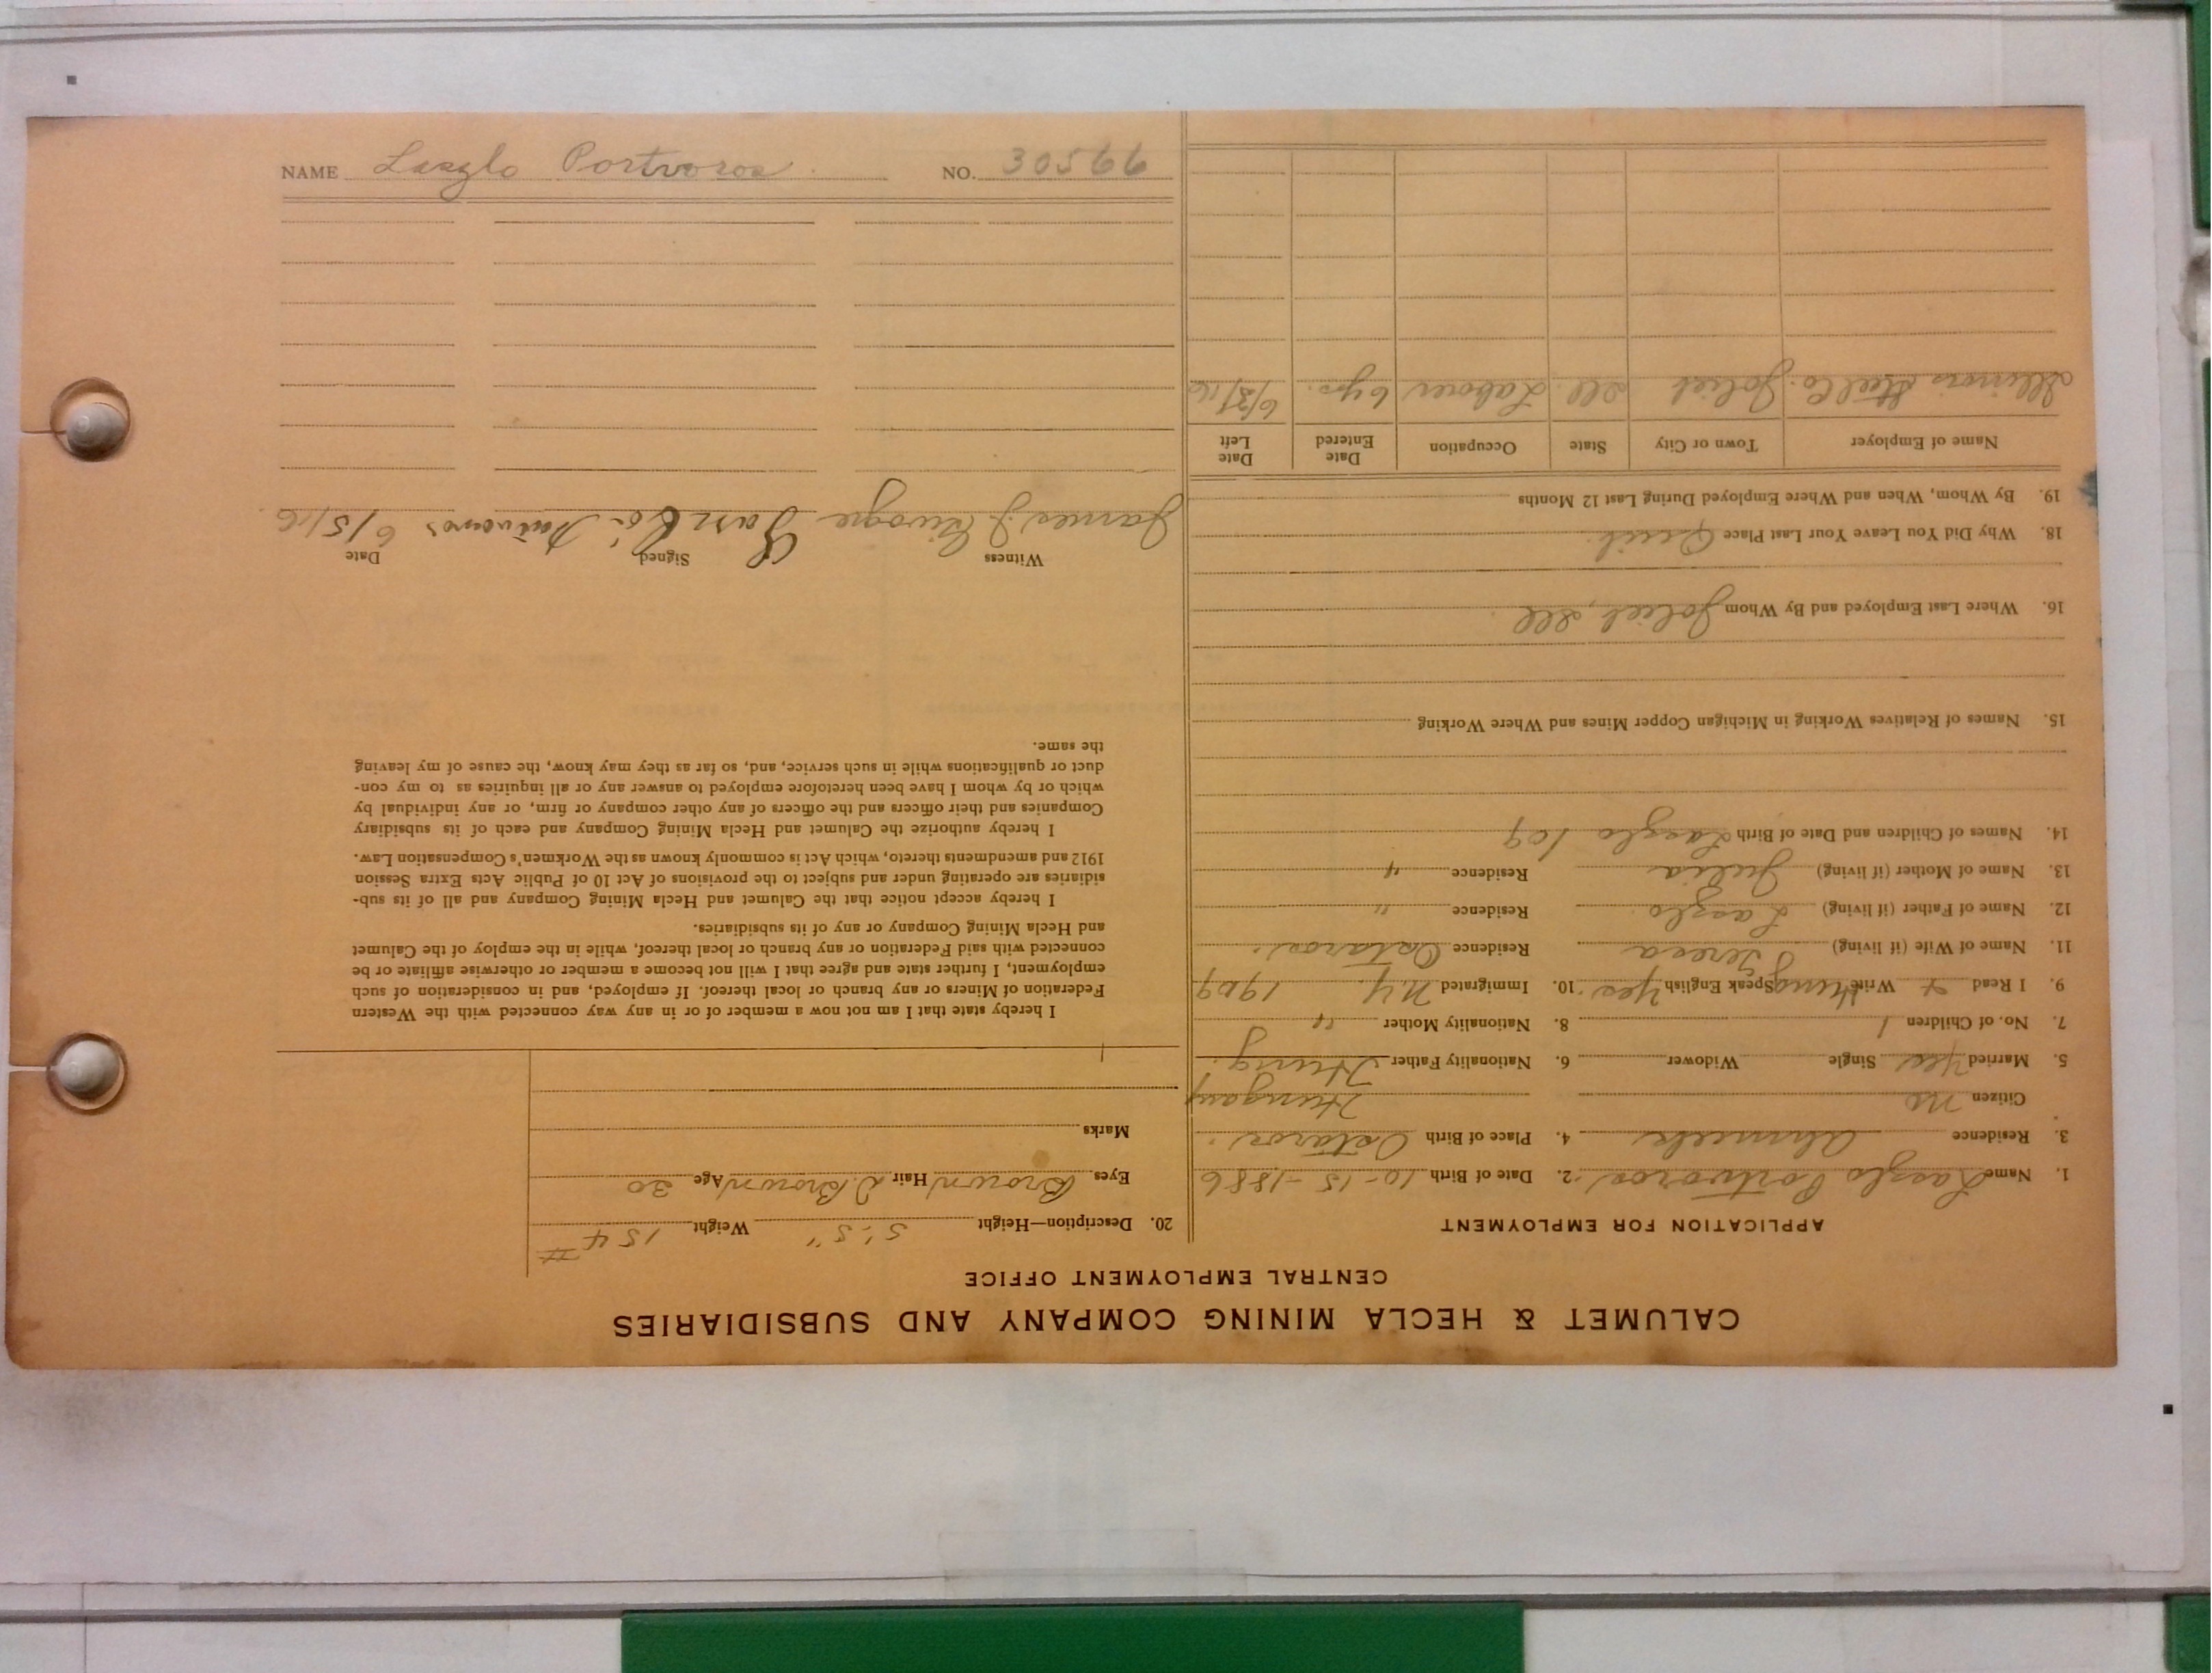 CALUMET & HECLA MINING COMPANY AND SUBSIDIARIES
CENTRAL EMPLOYMENT OFFICE
APPLICATION FOR EMPLOYMENT
1. Name Laszlo Portvoros 2. Date of Birth 10-15-1886
3. Residence Ahmeek 4. Place of Birth Ostoros
Citizen no Hungary
5. Married yes Single Widower 6. Nationality Father Hung
7. No. of Children 1 8. Nationality Mother "
9. I Read + Write Hung Speak English yes 10. Immigrated N.Y. 1909
11. Name of Wife (if living) Teresa Residence Ostoros
12. Name of Father (if living) Laszlo Residence "
13. Name of Mother (if living) Julia Residence "
14. Names of Children and Date of Birth Laszlo 109
15. Names of Relatives Working in Michigan Copper Mines and Where Working
16. Where Last Employed and By Whom Joliet, Ill
18. Why Did You Leave Your Last Place Quit.
19. By Whom, When and Where Employed During Last 12 Months
Name of Employer Town or City State Occupation Date Entered Date Left
Illinois Steel Co. Joliet Ill Laborer 6 yrs. 6/3/16
20. Description—Height 5'.5" Weight 154 #
Eyes Brown Hair D. Brown Age 30
Marks
I hereby state that I am not now a member of or in any way connected with the Western
Federation of Miners or any branch or local thereof. If employed, and in consideration of such
employment, I further state and agree that I will not become a member or otherwise affiliate or be
connected with said Federation or any branch or local thereof, while in the employ of the Calumet
and Hecla Mining Company or any of its subsidiaries.
I hereby accept notice that the Calumet and Hecla Mining Company and all of its sub-
sidiaries are operating under and subject to the provisions of Act 10 of Public Acts Extra Session
1912 and amendments thereto, which Act is commonly known as the Workmen's Compensation Law.
I hereby authorize the Calumet and Hecla Mining Company and each of its subsidiary
Companies and their officers and the officers of any other company or firm, or any individual by
which or by whom I have been heretofore employed to answer any or all inquiries as to my con-
duct or qualifications while in such service, and, so far as they may know, the cause of my leaving
the same.
Witness Signed Date
James J 6/5/16
NAME Laszlo Portvoros. NO. 30566